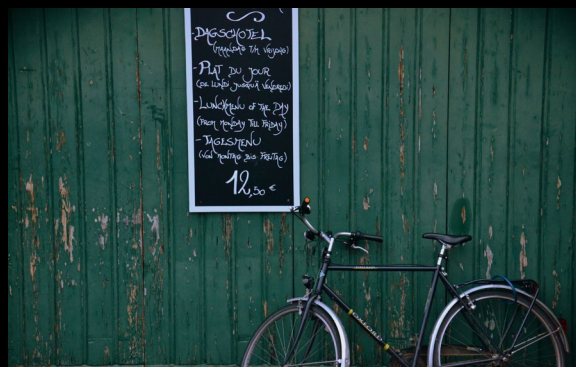 - DAGSCHOTEL
(MAANDAG T/M VRIJDAG)
- PLAT DU JOUR
(DE LUNDI JUSQU'À VENDREDI)
- LUNCHMENU OF THE DAY
(FROM MONDAY TILL FRIDAY)
- TAGESMENU
(VON MONTAG BIS FREITAG)
12,50 €
OXFORD